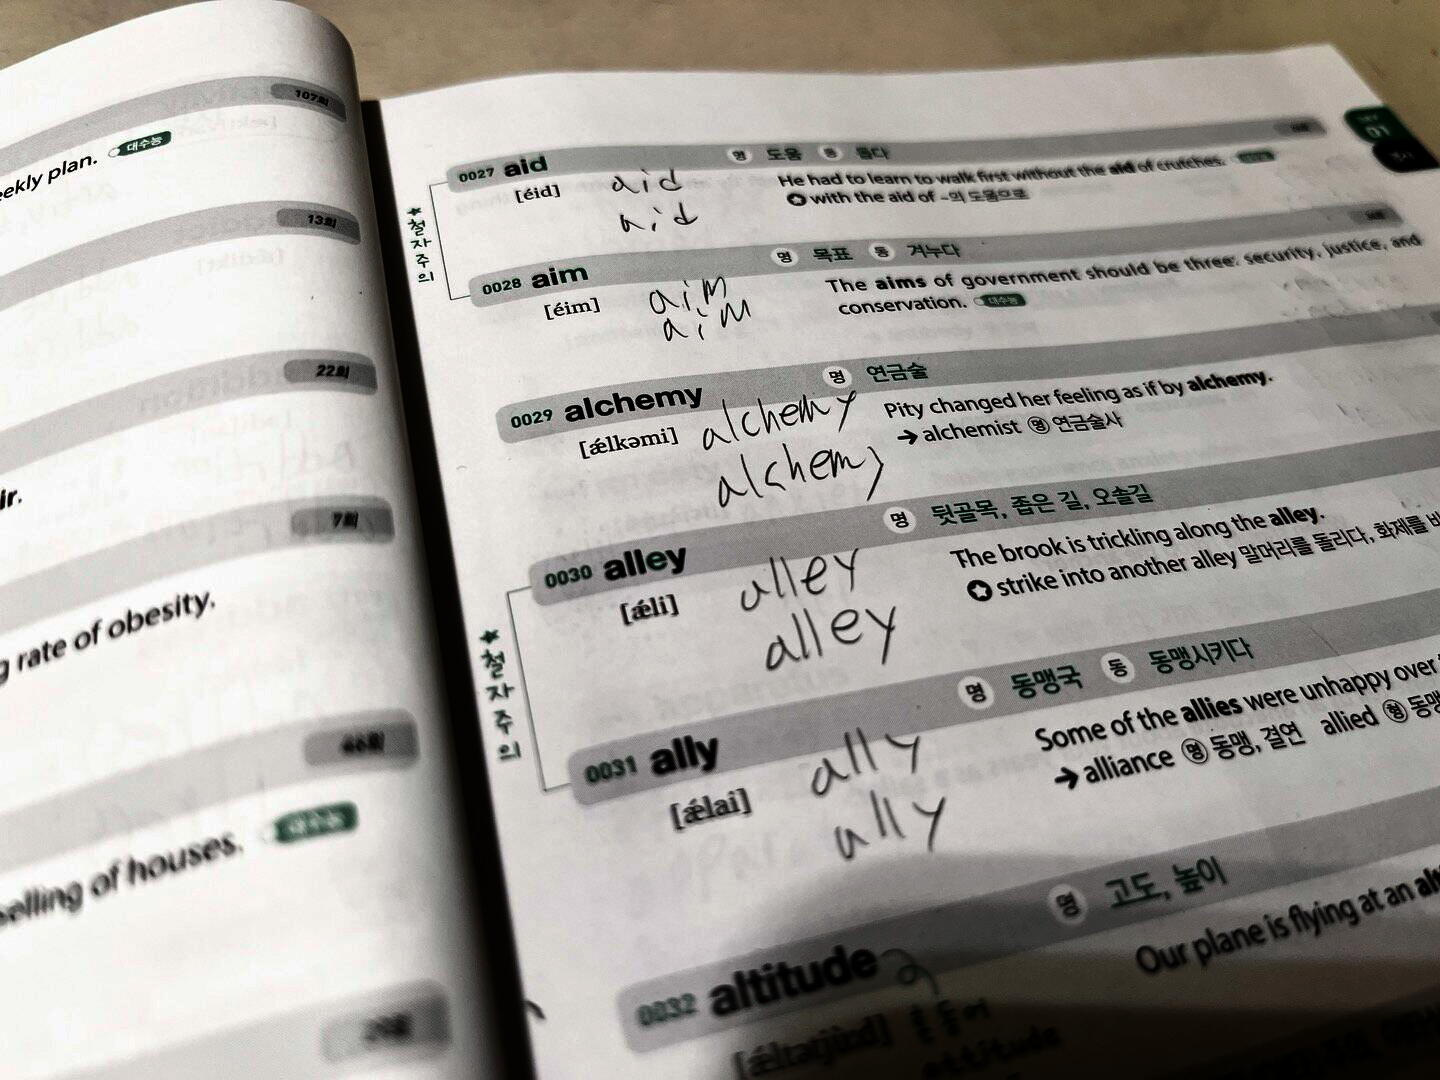 107회
eekly plan. 대수능
13회
22회
ir.
7회
g rate of obesity.
66회
elling of houses. 대수능
01
0027 aid 명 도움 동 돕다
[éid] aid He had to learn to walk first without the aid of crutches.
aid with the aid of ~의 도움으로
★철자주의
0028 aim 명 목표 동 겨누다
[éim] aim The aims of government should be three: security, justice, and
aim conservation. 대수능
0029 alchemy 명 연금술
[ǽlkəmi] alchemy Pity changed her feeling as if by alchemy.
alchemy → alchemist 명 연금술사
0030 alley 명 뒷골목, 좁은 길, 오솔길
[ǽli] alley The brook is trickling along the alley.
alley strike into another alley 말머리를 돌리다, 화제를 바
★철자주의
0031 ally 명 동맹국 동 동맹시키다
[ǽlai] ally Some of the allies were unhappy over
ally → alliance 명 동맹, 결연 allied 형 동맹
0032 altitude 명 고도, 높이
[ǽltətjùːd] Our plane is flying at an alt
attitude